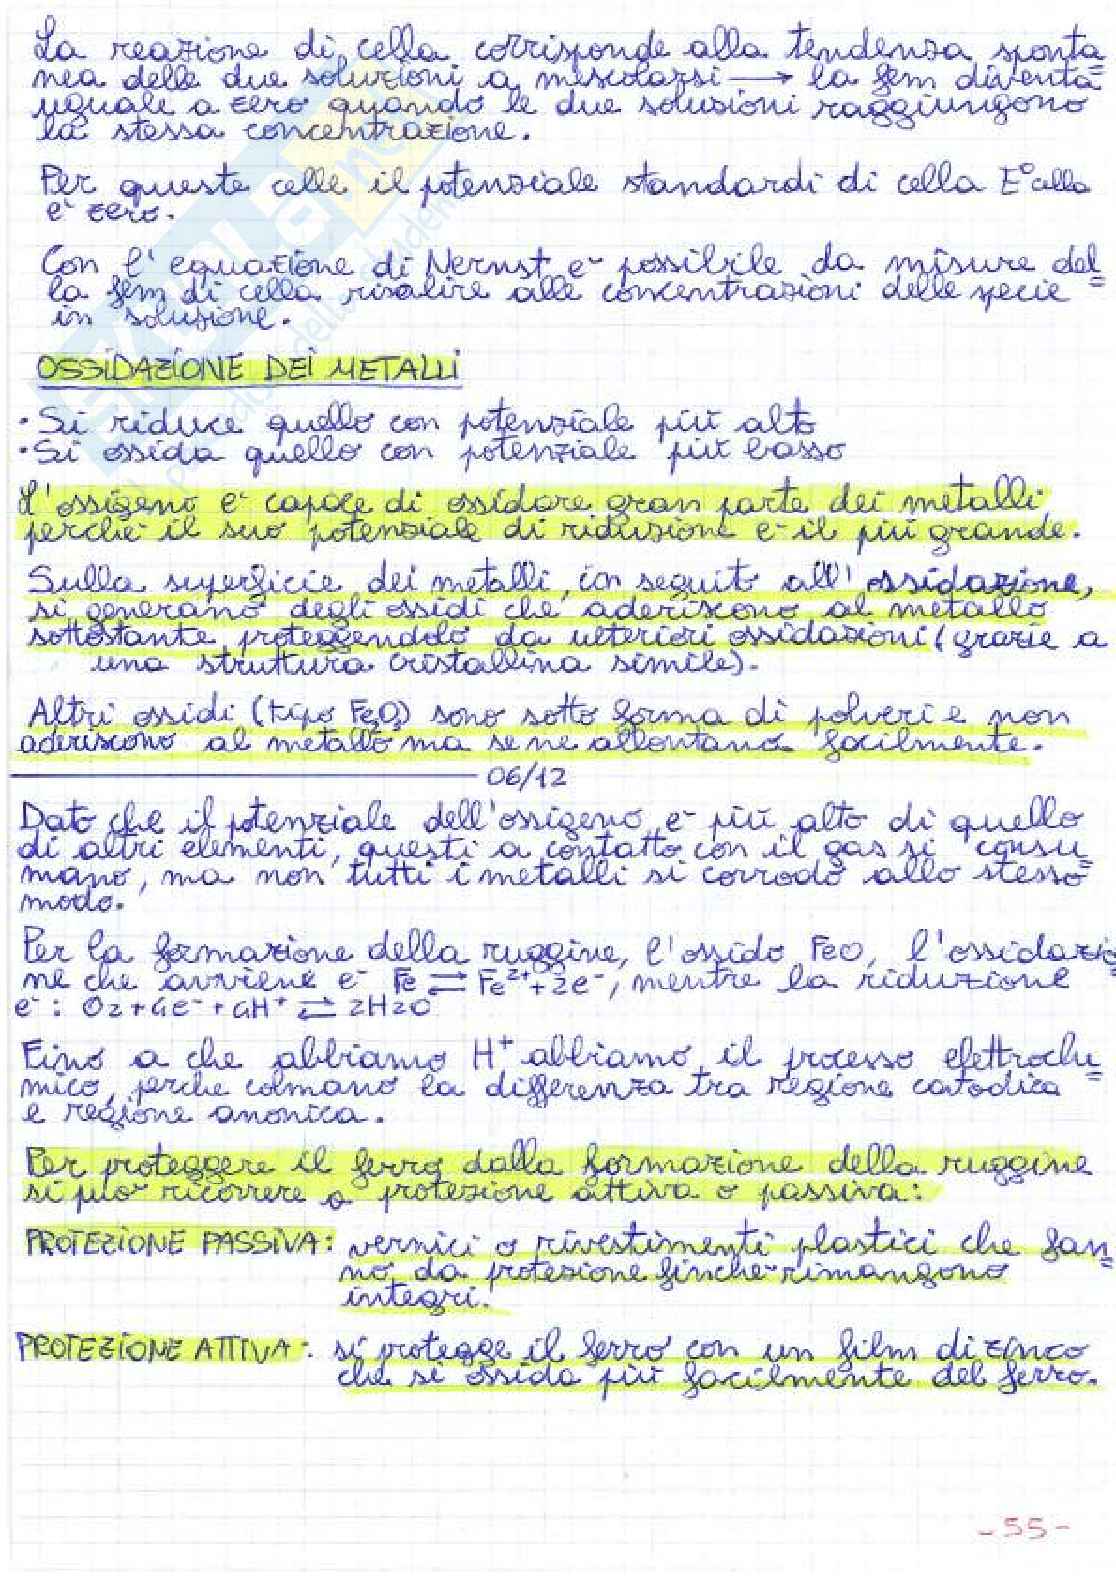 La reazione di cella corrisponde alla tendenza sponta=
nea delle due soluzioni a mescolarsi → la fem diventa
uguale a zero quando le due soluzioni raggiungono
la stessa concentrazione.
Per queste celle il potenziale standardi di cella E°cella
e' zero.
Con l'equazione di Nernst e' possibile da misure del=
la fem di cella risalire alle concentrazioni delle specie
in soluzione.
OSSIDAZIONE DEI METALLI
• Si riduce quello con potenziale più alto
• Si ossida quello con potenziale più basso
L'ossigeno e' capace di ossidare gran parte dei metalli
perchè il suo potenziale di riduzione e' il più grande.
Sulla superficie dei metalli, in seguito all'ossidazione,
si generano degli ossidi che aderiscono al metallo
sottostante proteggendolo da ulteriori ossidazioni (grazie a
una struttura cristallina simile).
Altri ossidi (tipo Fe2O3) sono sotto forma di polveri e non
aderiscono al metallo ma se ne allontana facilmente.
06/12
Dato che il potenziale dell'ossigeno e' più alto di quello
di altri elementi, questi a contatto con il gas si consu=
mano, ma non tutti i metalli si corrodo allo stesso
modo.
Per la formazione della ruggine, l'ossido FeO, l'ossidazio
ne che avviene e' Fe ⇌ Fe2+ + 2e-, mentre la riduzione
e': O2 + 4e- + 4H+ ⇌ 2H2O
Fino a che abbiamo H+ abbiamo il processo elettrochi=
mico, perche colmano la differenza tra regione catodica
e regione anonica.
Per proteggere il ferro dalla formazione della ruggine
si può ricorrere a protezione attiva o passiva:
PROTEZIONE PASSIVA: vernici o rivestimenti plastici che fan=
no da protezione finchè rimangono
integri.
PROTEZIONE ATTIVA: si protegge il ferro con un film di zinco
che si ossida più facilmente del ferro.
-55-